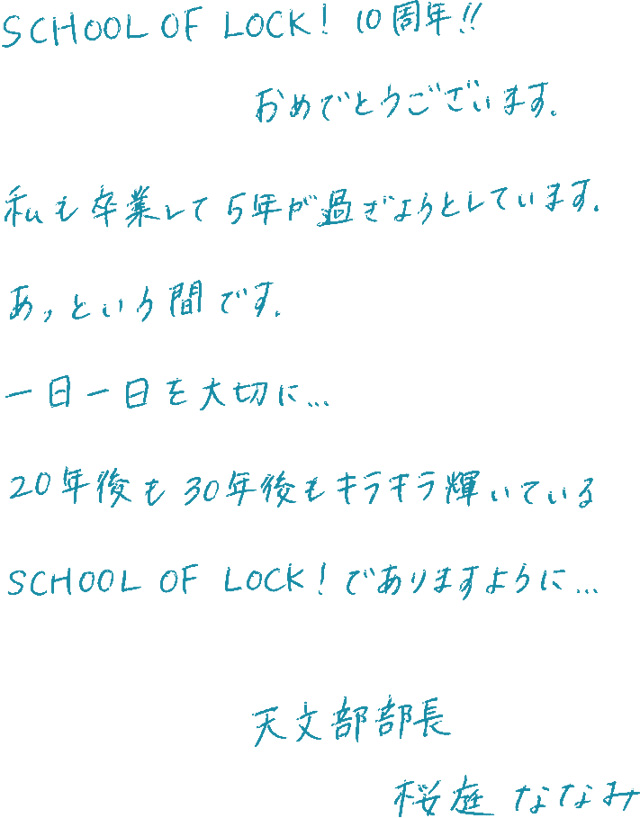 SCHOOL OF LOCK! 10周年!!
おめでとうございます。
私も卒業して5年が過ぎようとしています。
あっという間です。
一日一日を大切に…
20年後も30年後もキラキラ輝いている
SCHOOL OF LOCK!でありますように…
天文部部長
桜庭ななみ